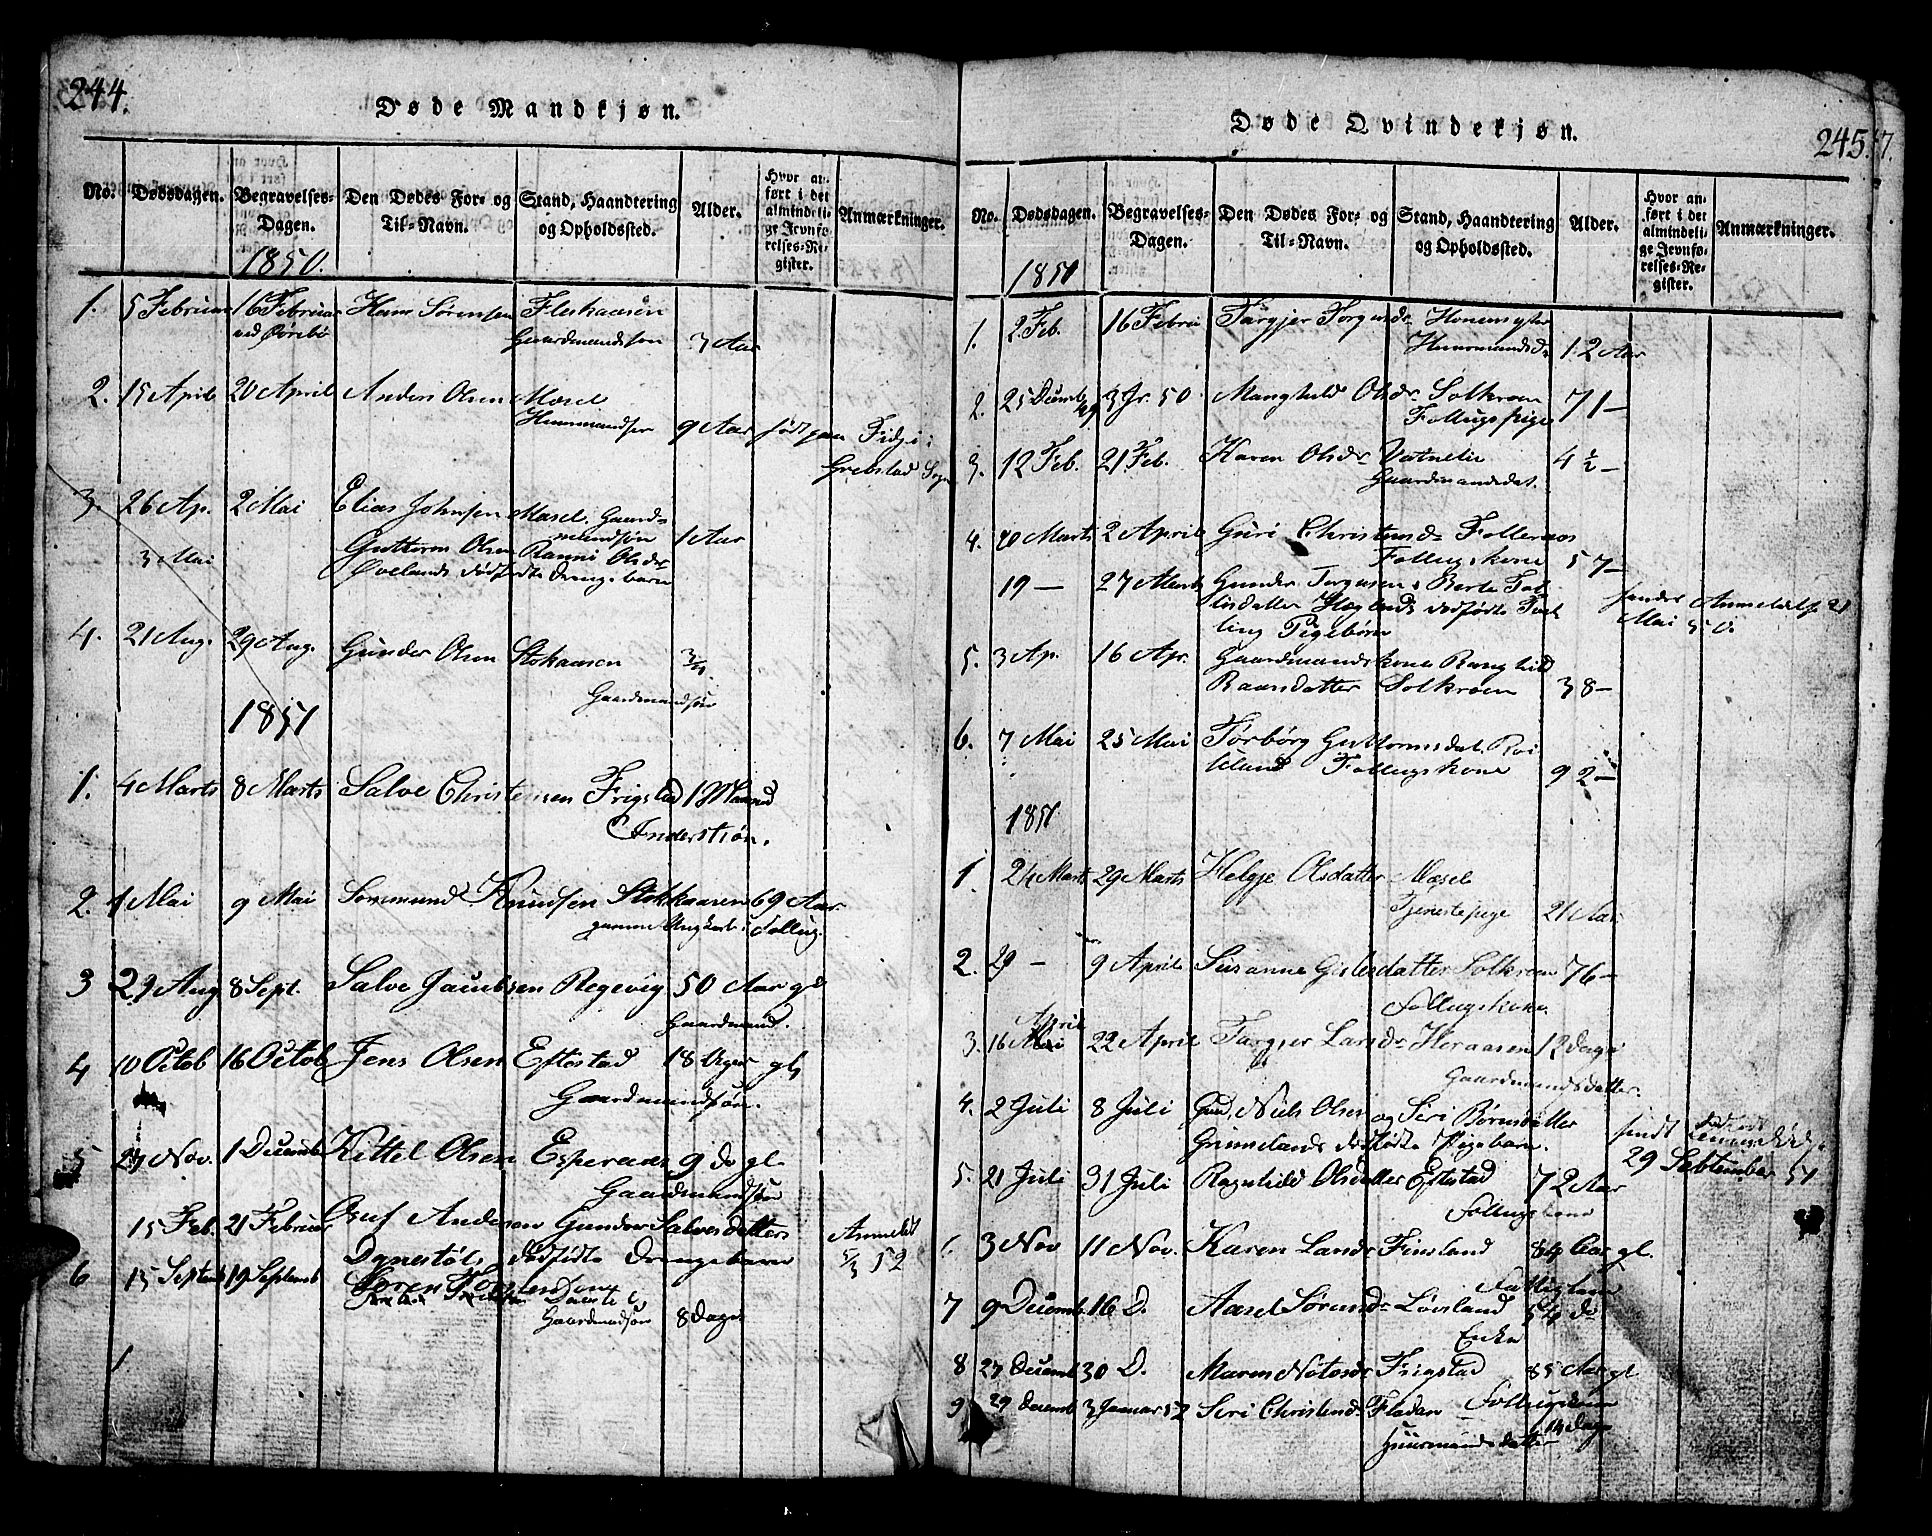 244.
Døde Mandkjøn.
No. Dødsdagen. Begravelses-Dagen. Den Dødes For- og Til-Navn. Stand, Haandtering og Opholdssted. Alder. Hvor anført i det almindelige Jevnførelses-Register. Anmærkninger.
1850.
1. 5 Februar 16 Februar Hans Sørensen Fleskaasen
ved Øvrebø Gaardmandssøn 3 Aar
2. 15 April 20 April Anders Olsen Mosel
Huusmandsøn 9 Aar født paa Fidje i
Grebstad Sogn
3. 26 Ap. 2 Mai Elias Johnsen Mosel. Gaard-
mandsøn 1 Aar
3 Mai Guttorm Olsen Ranni Olsdr
Øvlands dødfødte Drengebarn
4. 21 Aug. 29 Aug. Gunder Olsen Stokaasen 3/4
Gaardmandsøn
1851
1. 4 Marts 8 Marts Salve Christensen Frigstad 1 Maaned
Inderstsøn.
2. 1 Mai 9 Mai Tommund Knudsen Stokkaasen 69 Aar
gamme Ungkarl i Follug.
3 29 Aug 8 Sept. Salve Jacobsen Regevig 50 Aar gl
Gaardmand.
4 10 Octob 16 Octob Jens Olsen Eftestad 18 Uger gl
Gaardmandsøn.
5 29 Nov. 1 Decemb Kittel Olsen Esperaas 9 do gl.
Gaardmandsøn
15 Feb. 21 Februar Oluf Andersen Gunder Salvesdatters Anmeldt
Dynestøl, dødfødte Drengebarn 5/3 52
6 15 Septemb 19 Septemb Søren
Gaardmdsøn 8 Dage
245.
Døde Qvindekjøn.
No. Dødsdagen. Begravelses-Dagen. Den Dødes For- og Til-Navn. Stand, Haandtering og Opholdssted. Alder. Hvor anført i det almindelige Jevnførelses-Register. Anmærkninger.
1850
1. 2 Feb. 16 Februar Targjer Torgusdr Honemyhr
Huusmandsdr 1 2 Aar
2. 25 Decemb 49 3 Jr. 50 Manghild Olsdr Solkroen 71 —
Follugspige
3. 12 Feb. 21 Feb. Karen Olsdr Vatnelie 4 ½ —
Gaardmandsdat.
4. 20 Marts 2 April Guri Christensdr Follernes
Follugskone 57 —
19 — 27 Marts Gunder Torgusens Berte To-
dødfødte Tvil-
ling Pigebørn Mai 50.
5. 3 Ap. 16 Apr. Gaardmandskone Ranghild
Baansdatter Solkroen 38 —
6. 7 Mai 25 Mai Torborg Guttormsdat. Roi
land Follugskone 92 —
1851
1. 24 Marts 29 Marts Helge Olsdatter Mosel
Tjenestepige 21 Aar.
2. 29 — 9 April Susanne Gislesdatter Solkroen 76 —
Follugskone
3. 16 April 22 April Targjer Larsdr Heraasen 12 Dage
Gaardmandsdatter.
4. 2 Juli 8 Juli Gmd, Niels Olsen og Siri Børnsdatter
Grimelands dødfødte Pigebarn. sendt
29 September 51
5. 21 Juli 31 Juli Ragnhild Olsdatter Eftestad 72 Aar
Follugskone
6. 3 Nov 11 Nov. Karen Larsdr Finsland 84 Aar gl.
Fattiglem
7 9 Decemb. 16 D. Aasel Sørensdr Løvsland 54 do
Enke
8 27 Decemb 30 D. Maren Notosdr Frigstad 85 Aar gl
9 29 Decemb 3 Januar 52 Siri Christensdr Fladan
Huusmandsdatter 14 Dage